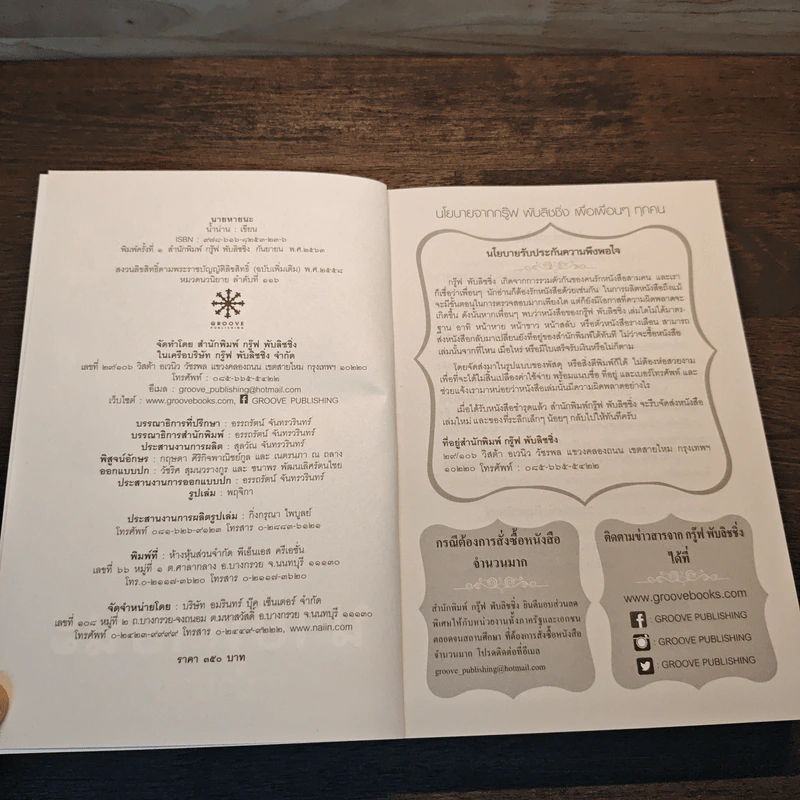 นายหายนะ
น้ำน่าน : เขียน
ISBN : ๙๗๘-๖๑๖-๔๒๕๓-๒๓-๖
พิมพ์ครั้งที่ ๑ สำนักพิมพ์ กรู๊ฟ พับลิชชิ่ง กันยายน พ.ศ.๒๕๖๓
สงวนลิขสิทธิ์ตามพระราชบัญญัติลิขสิทธิ์ (ฉบับเพิ่มเติม) พ.ศ.๒๕๕๘
หมวดนวนิยาย ลำดับที่ ๑๑๖
GROOVE
PUBLISHING
จัดทำโดย สำนักพิมพ์ กรู๊ฟ พับลิชชิ่ง
ในเครือบริษัท กรู๊ฟ พับลิชชิ่ง จำกัด
เลขที่ ๒๙/๑๐๖ วิสต้า อเวนิว วัชรพล แขวงคลองถนน เขตสายไหม กรุงเทพฯ ๑๐๒๒๐
โทรศัพท์ : ๐๘๕-๖๖๕-๕๔๒๒
อีเมล : groove_publishing@hotmail.com
เว็บไซต์ : www.groovebooks.com, GROOVE PUBLISHING
บรรณาธิการที่ปรึกษา : อรรถรัตน์ จันทรวรินทร์
บรรณาธิการสำนักพิมพ์ : อรรถรัตน์ จันทรวรินทร์
ประสานงานการผลิต : สุลวัณ จันทรวรินทร์
พิสูจน์อักษร : กฤษดา ศิริกิจพาณิชย์กูล และ เนตรนภา ณ ถลาง
ออกแบบปก : วัชริศ สุมนวรางกูร และ ธนาพร พัฒนเลิศรัตนไชย
ประสานงานการออกแบบปก : อรรถรัตน์ จันทรวรินทร์
รูปเล่ม : พฤจิกา
ประสานงานการผลิตรูปเล่ม : กิ่งกรุณา ไพบูลย์
โทรศัพท์ ๐๘๑-๖๒๖-๙๑๒๓ โทรสาร ๐-๒๘๘๓-๖๑๒๑
พิมพ์ที่ : ห้างหุ้นส่วนจำกัด พีเอ็นเอส ครีเอชั่น
เลขที่ ๖๖ หมู่ที่ ๑ ต.ศาลากลาง อ.บางกรวย จ.นนทบุรี ๑๑๑๓๐
โทร.๐-๒๑๑๗-๓๖๒๐ โทรสาร ๐-๒๑๑๗-๓๖๒๐
จัดจำหน่ายโดย : บริษัท อมรินทร์ บุ๊ค เซ็นเตอร์ จำกัด
เลขที่ ๑๐๘ หมู่ที่ ๒ ถ.บางกรวย-จงถนอม ต.มหาสวัสดิ์ อ.บางกรวย จ.นนทบุรี ๑๑๑๓๐
โทรศัพท์ ๐-๒๔๒๓-๙๙๙๙ โทรสาร ๐-๒๔๔๙-๙๒๒๒, www.naiin.com
ราคา ๓๕๐ บาท
นโยบายจากกรู๊ฟ พับลิชชิ่ง เพื่อเพื่อนๆ ทุกคน
นโยบายรับประกันความพึงพอใจ
กรู๊ฟ พับลิชชิ่ง เกิดจากการรวมตัวกันของคนรักหนังสือสามคน และเรา
ก็เชื่อว่าเพื่อนๆ นักอ่านก็ต้องรักหนังสือด้วยเช่นกัน ในการผลิตหนังสือถึงแม้
จะมีขั้นตอนในการตรวจสอบมากเพียงใด แต่ก็ยังมีโอกาสที่ความผิดพลาดจะ
เกิดขึ้น ดังนั้นหากเพื่อนๆ พบว่าหนังสือของกรู๊ฟ พับลิชชิ่ง เล่มใดไม่ได้มาตร-
ฐาน อาทิ หน้าหาย หน้าขาว หน้าสลับ หรือตัวหนังสือรางเลือน สามารถ
ส่งหนังสือกลับมาเปลี่ยนยังที่อยู่ของสำนักพิมพ์ได้ทันที ไม่ว่าจะซื้อหนังสือ
เล่มนั้นจากที่ไหน เมื่อไหร่ หรือมีใบเสร็จรับเงินหรือไม่ก็ตาม
โดยจัดส่งมาในรูปแบบของพัสดุ หรือสิ่งตีพิมพ์ก็ได้ ไม่ต้องห่อสวยงาม
เพื่อที่จะได้ไม่สิ้นเปลืองค่าใช้จ่าย พร้อมแนบชื่อ ที่อยู่ และเบอร์โทรศัพท์ และ
ช่วยแจ้งเรามาหน่อยว่าหนังสือเล่มนั้นมีความผิดพลาดอย่างไร
เมื่อได้รับหนังสือชำรุดแล้ว สำนักพิมพ์กรู๊ฟ พับลิชชิ่ง จะรีบจัดส่งหนังสือ
เล่มใหม่ และของที่ระลึกเล็กๆ น้อยๆ กลับไปให้ทันทีครับ
ที่อยู่สำนักพิมพ์ กรู๊ฟ พับลิชชิ่ง
๒๙/๑๐๖ วิสต้า อเวนิว วัชรพล แขวงคลองถนน เขตสายไหม กรุงเทพฯ
๑๐๒๒๐ โทรศัพท์ : ๐๘๕-๖๖๕-๕๔๒๒
กรณีต้องการสั่งซื้อหนังสือ
จำนวนมาก
สำนักพิมพ์ กรู๊ฟ พับลิชชิ่ง ยินดีมอบส่วนลด
พิเศษให้กับหน่วยงานทั้งภาครัฐและเอกชน
ตลอดจนสถานศึกษา ที่ต้องการสั่งซื้อหนังสือ
จำนวนมาก โปรดติดต่อที่อีเมล
groove_publishing@hotmail.com
ติดตามข่าวสารจาก กรู๊ฟ พับลิชชิ่ง
ได้ที่
www.groovebooks.com
: GROOVE PUBLISHING
: GROOVE PUBLISHING
: GROOVE PUBLISHING